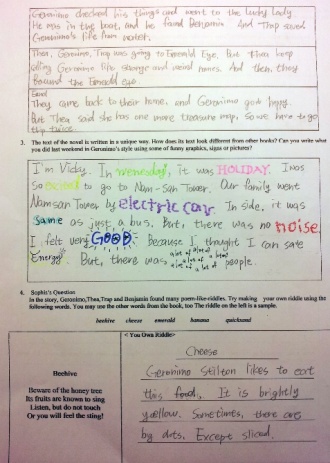 Geronimo checked his things and went to the Lucky Lady.
He was in the boat, and he found Benjamin And Trap saved
Geronimo's life from water.
Then, Geronimo, Trap was going to Emerald Eye. But Thea keep
calling Geronimo like strange and weird names. And then, they
found the Emerald eye.
End
They came back to their home, and Geronimo was happy.
But Thea said she has one more treasure map, So we have to go
trip twice.
3. The text of the novel is written in a unique way. How does its text look different from other books? Can you write what
you did last weekend in Geronimo's style using some of funny graphics, signs or pictures?
I'm Vicky. In Wednesday, it was HOLIDAY. I was
So excited to go to Nam-San Tower. Our family went
Namsan Tower by electric car. In side, it was
same as just a bus. But, there was no noise.
I felt very GOOD. Because I thought I can save
Energy. But, there was a lot of a lot of a lot of people.
4. Sophia's Question
In the story, Geronimo,Thea,Trap and Benjamin found many poem-like-riddles. Try making your own riddle using the
following words. You may use the other words from the book, too The riddle on the left is a sample.
beehive cheese emerald banana quicksand
< You Own Riddle>
Beehive
Beware of the honey tree
Its fruits are known to sing
Listen, but do not touch
Or you will feel the sting!
Cheese
Geronimo Stilton likes to eat
this food. It is brightly
yellow. Sometimes, there are
by dots. Except sliced.